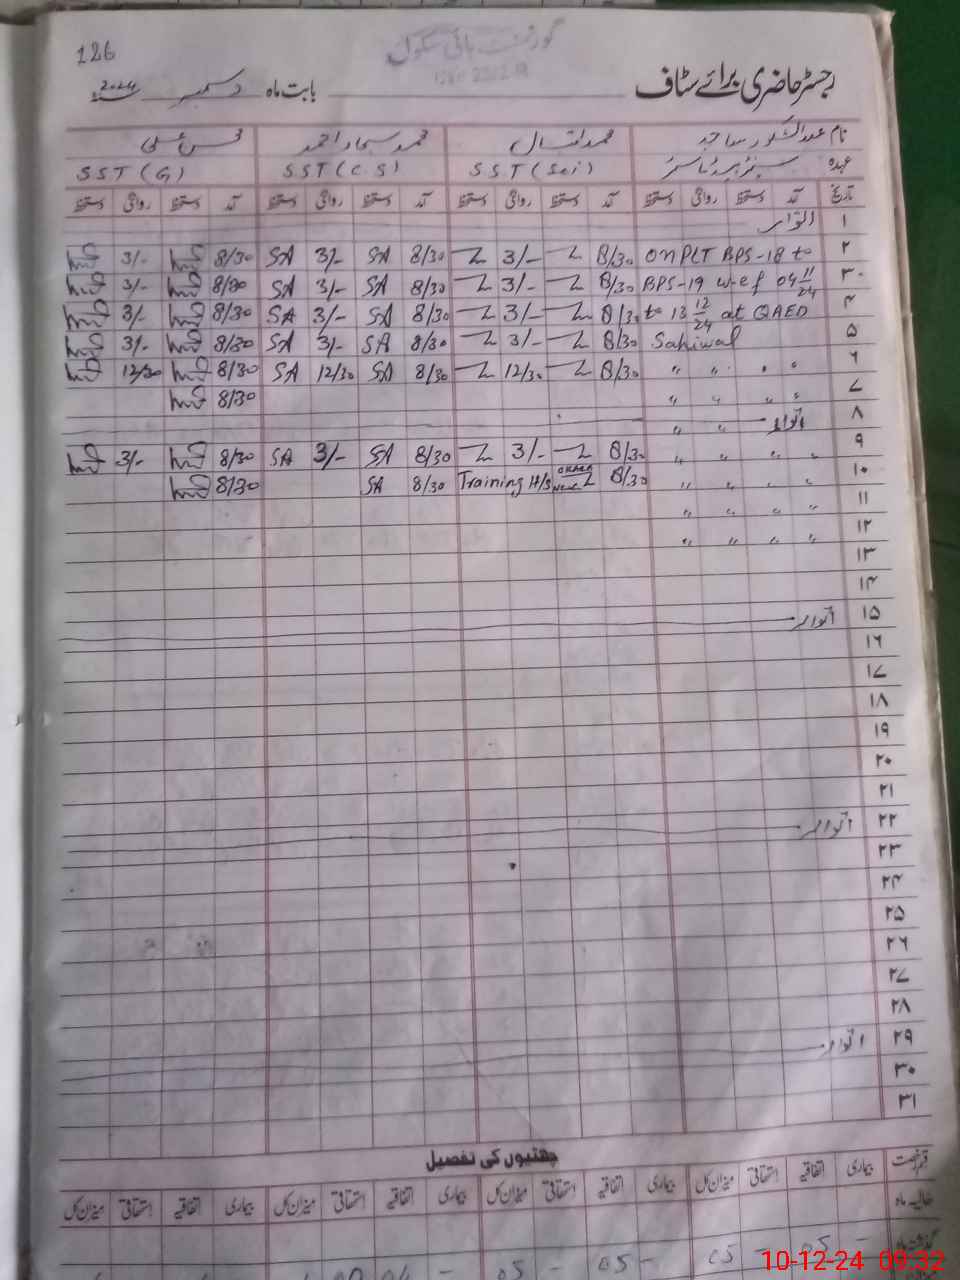 126
گورنمنٹ ہائی سکول
رجسٹر حاضری برائے سٹاف
بابت ماہ دسمبر سنہ ۲۰۲۴
نام عبدالشکور ساجد محمد سجاد احمد محسن علی
عہدہ سینئر ہیڈ ماسٹر SST (Sci) SST (CS) SST (G)
تاریخ آمد دستخط روانگی دستخط آمد دستخط روانگی دستخط آمد دستخط روانگی دستخط آمد دستخط روانگی دستخط
۱ اتوار
۲ on PLT BPS-18 to 8/30 3/- 8/30 SA 3/- SA 8/30 3/-
۳ BPS-19 w-ef 04 11/24 8/30 3/- 8/30 SA 3/- SA 8/30 3/-
۴ to 13 12/24 at QAED 8/30 3/- 8/30 SA 3/- SA 8/30 3/-
۵ Sahiwal 8/30 3/- 8/30 SA 3/- SA 8/30 3/-
۶ " " " " 8/30 12/30 8/30 SA 12/30 SA 8/30 12/30
۷ " " " 8/30
۸ اتوار " "
۹ " " " " 8/30 3/- 8/30 SA 3/- SA 8/30 3/-
۱۰ " " " " 8/30 Training 8/30 SA 8/30
۱۱ " " " "
۱۲ " " " "
۱۳
۱۴
۱۵ اتوار
۱۶
۱۷
۱۸
۱۹
۲۰
۲۱
۲۲ اتوار
۲۳
۲۴
۲۵
۲۶
۲۷
۲۸
۲۹ اتوار
۳۰
۳۱
چھٹیوں کی تفصیل
قسم رخصت بیماری اتفاقیہ استحقاقی میزان کل بیماری اتفاقیہ استحقاقی میزان کل بیماری اتفاقیہ استحقاقی میزان کل بیماری اتفاقیہ استحقاقی میزان کل
حالیہ ماہ
گذشتہ ماہ - 05 - 05 - 05 - 05 - 04
10-12-24 09:32